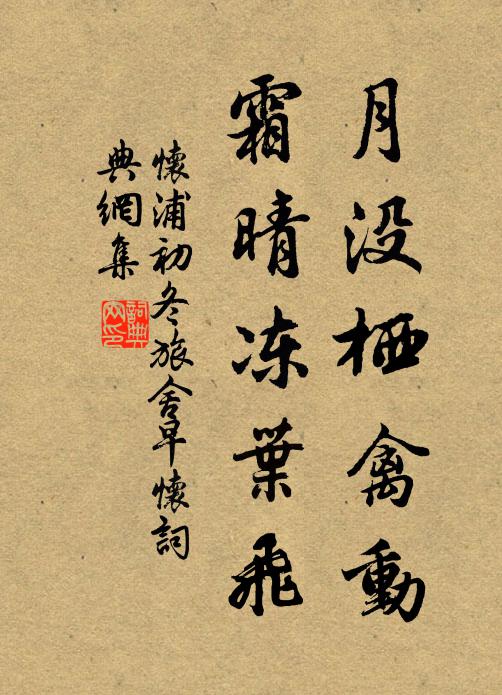 月没栖禽動
霜晴冻葉飛
懷浦初冬旅舍早懷詞
典網集
詞典
网印